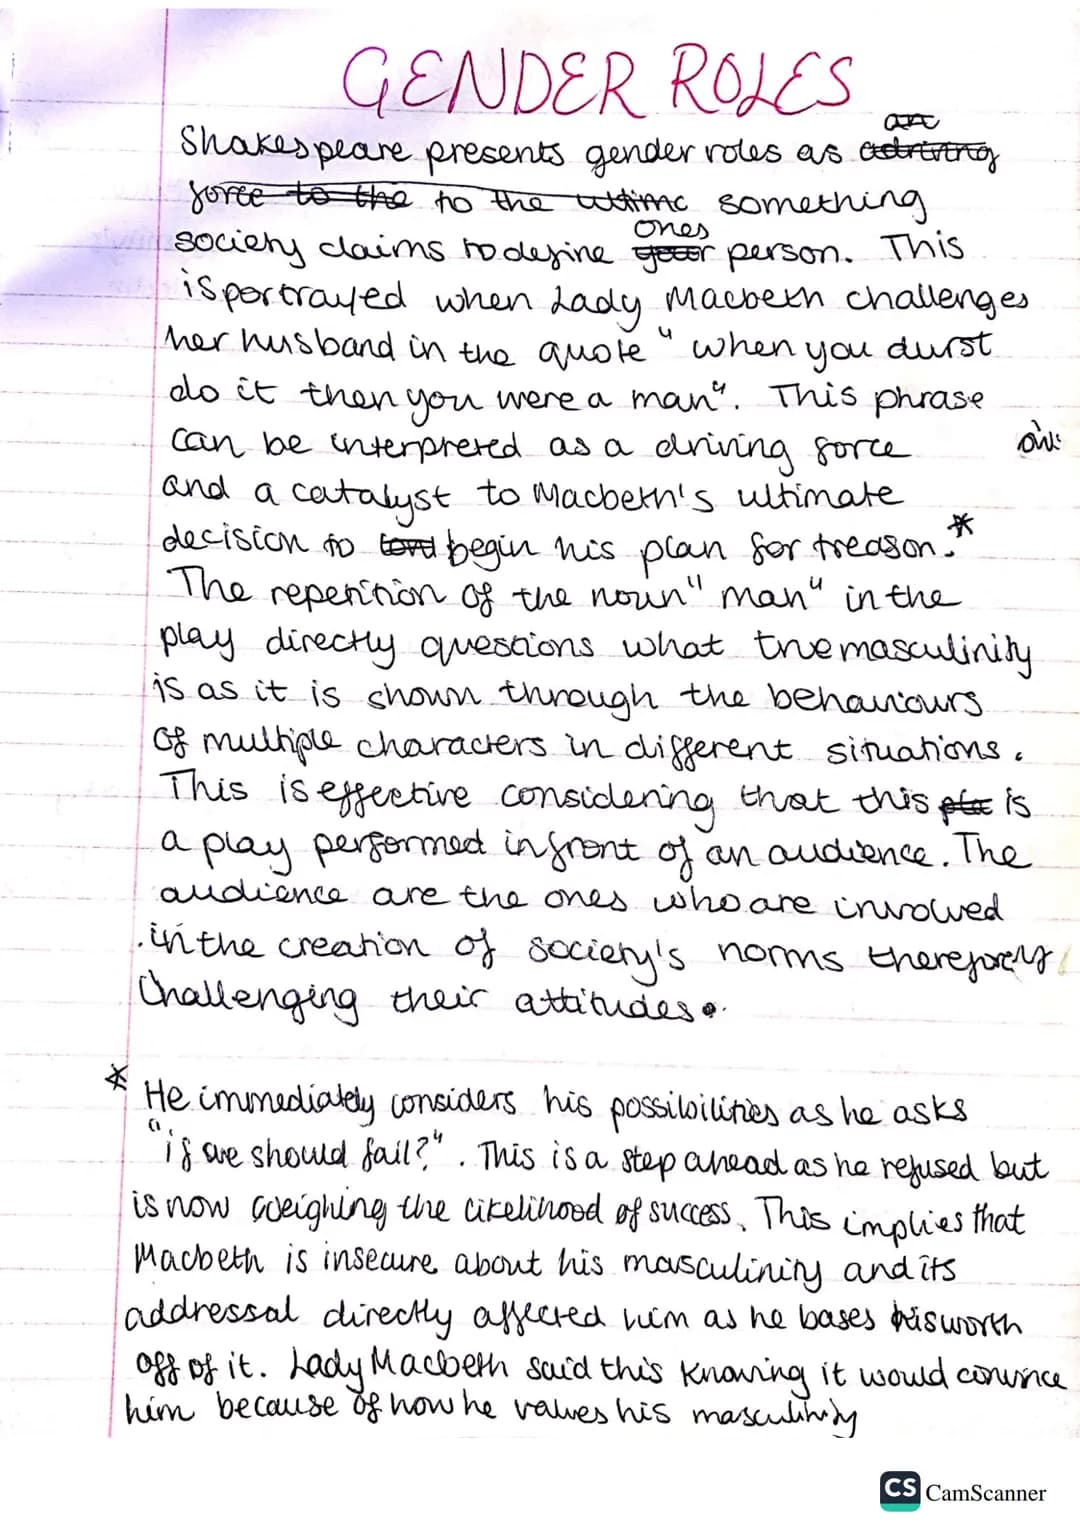 GENDER ROLES
an
Shakespeare presents gender roles as a driving
force to the to the ultime something
ones
society claims to define your person. This
is portrayed when Lady Macbeth challenges
her husband in the quote "when you durst
do it then you were a man". This phrase
can be interpreted as a driving force
and a catalyst to Macbeth's ultimate
decision to begin his plan for treason.*
The repetition of the noun "man" in the
play directly questions what true masculinity
is as it is shown through the behaviours
of multiple characters in different situations.
This is effective considering that this pla is
a play performed infront of an audience. The
audience are the ones who are involved
in the creation of society's norms therefore
Challenging their attitudes.
* He immediately considers his possibilities as he asks
"if we should fail?". This is a step ahead as he refused but
is now weighing the likelihood of success. This implies that
Macbeth is insecure about his masculinity and its
addressal directly affected him as he bases his worth
off of it. Lady Macbeth said this knowing it would convince
him because of how he values his masculinity
CS CamScanner